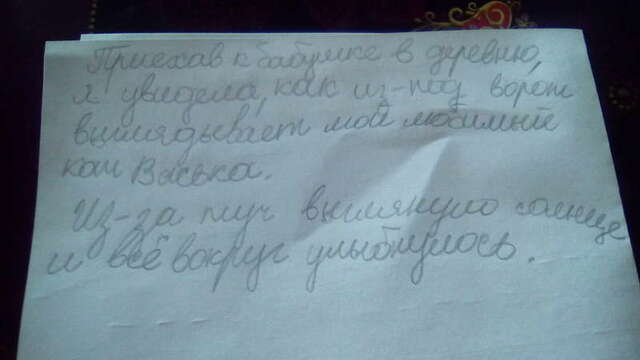 Приехав к бабушке в деревню,
я увидела, как из-под ворот
выглядывает мой любимый
кот Васька.
Из-за туч выглянуло солнце
и всё вокруг улыбнулось.